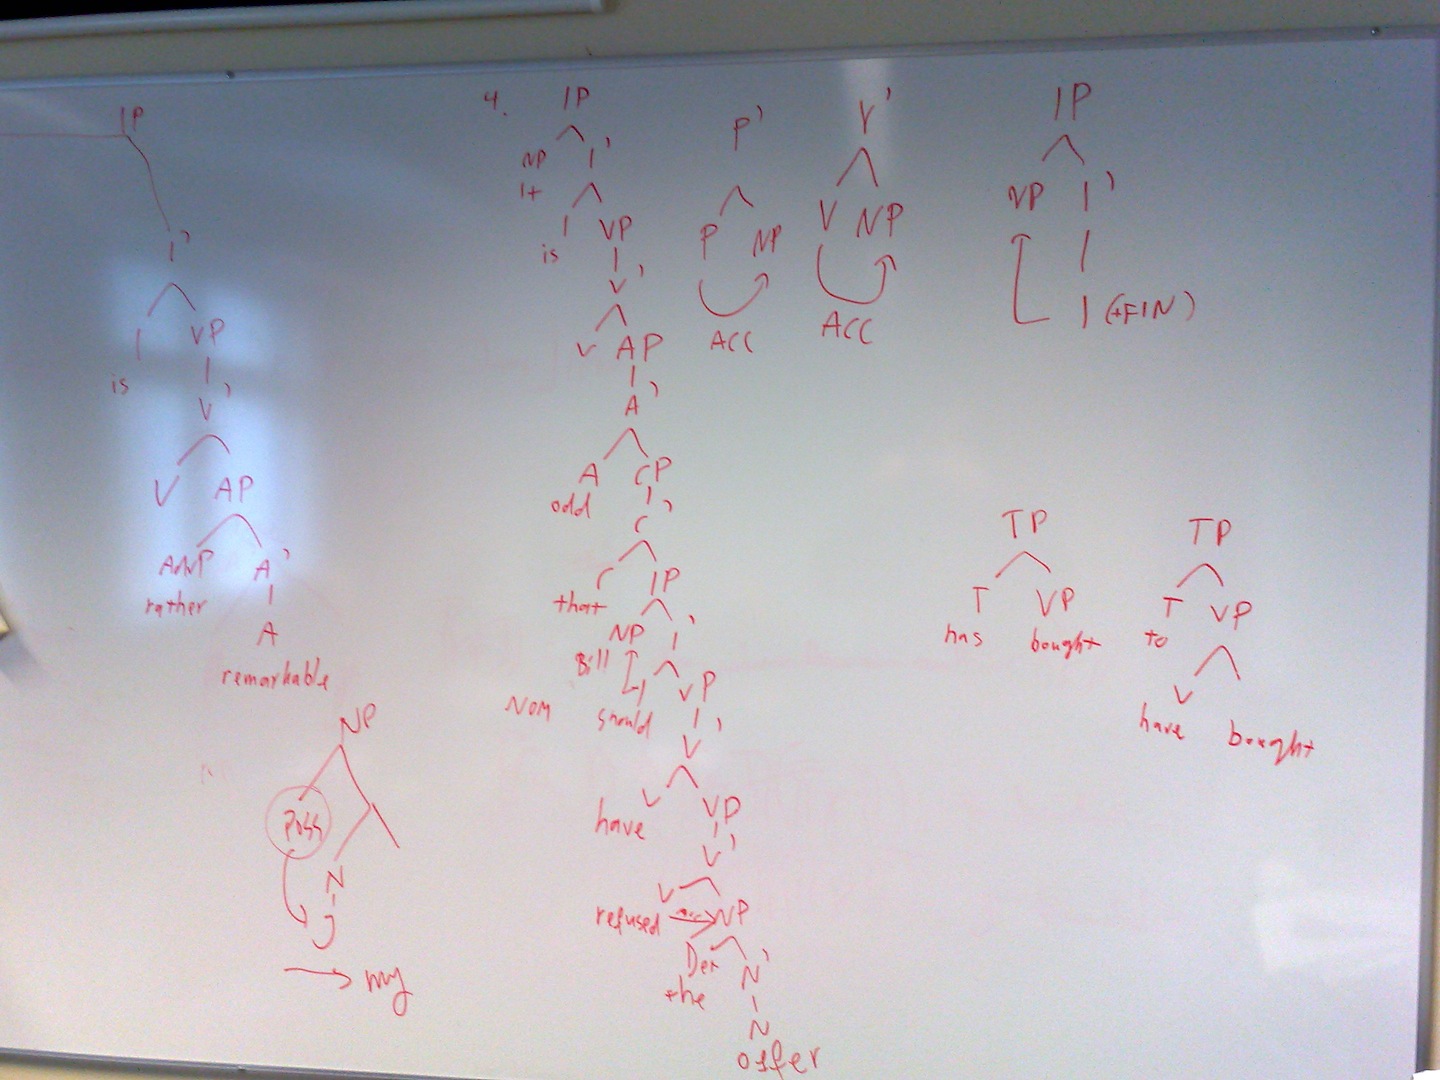 IP
I'
I VP
is
V'
V AP
AdvP A'
rather
A
remarkable
NP
Poss
N
→ my
4.
IP
NP I'
It
I VP
is
V'
V AP
A'
A CP
odd
C'
C IP
that
NP I'
Bill
I VP
NOM should
V'
V VP
have
V'
V NP
refused
Det N'
the
N
offer
P'
P NP
ACC
V'
V NP
ACC
IP
NP I'
I (+FIN)
TP
T VP
has bought
TP
T VP
to
V
have bought